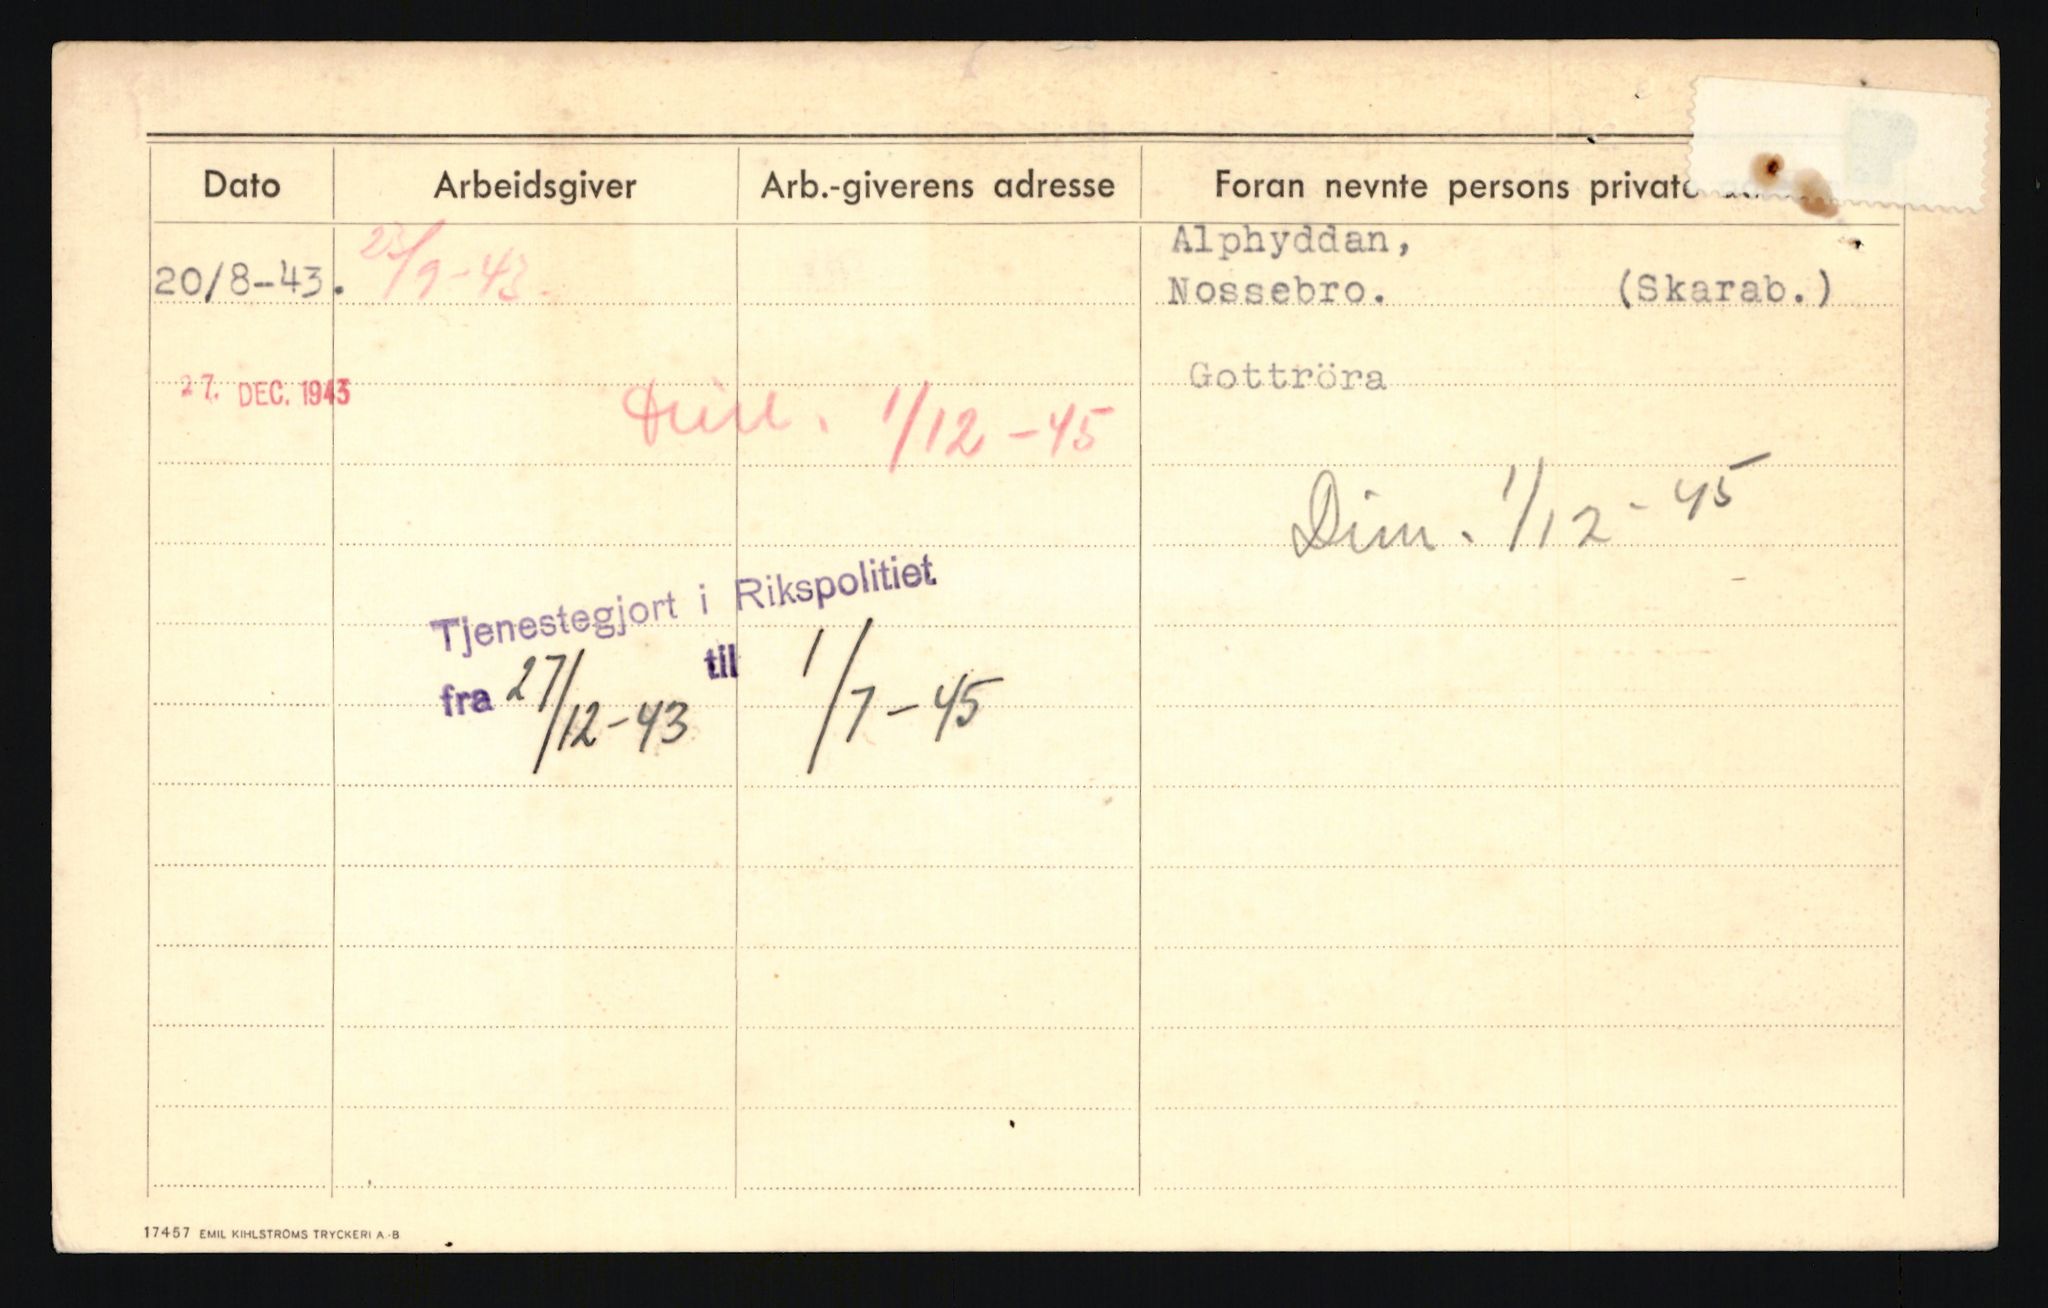 Dato Arbeidsgiver Arb.-giverens adresse Foran nevnte persons private
Alphyddan,
20/8-43. 23/9-43. Nossebro. (Skarab.)
Gottröra
27. DEC. 1943
1/12-45
Dim. 1/12-45
Tjenestegjort i Rikspolitiet
fra 27/12-43 til 1/7-45
17457 EMIL KIHLSTRÖMS TRYCKERI A.-B